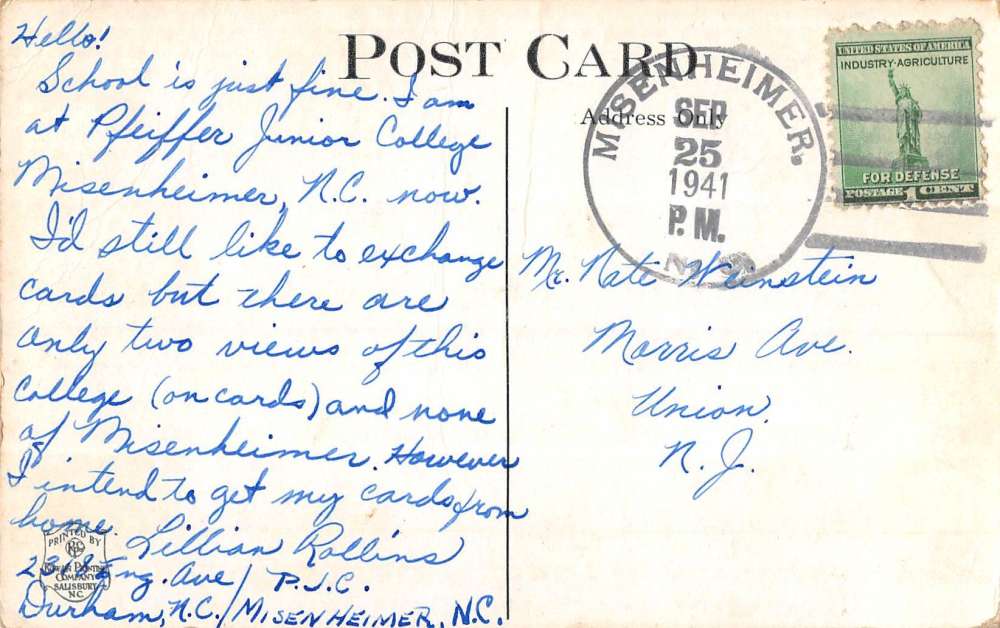 Hello!
School is just fine. I am
at Pfeiffer Junior College
Misenheimer, N.C. now.
I'd still like to exchange
cards but there are
only two views of this
college (on cards) and none
of Misenheimer. However
I intend to get my cards from
home.
Lillian Rollins
Ave / P.J.C.
Durham, N.C. / MISENHEIMER, N.C.
PRINTED BY
ROWAN PRINTING
COMPANY
SALISBURY
N.C.
POST CARD
Address Only
MISENHEIMER.
SEP
25
1941
P.M.
UNITED STATES OF AMERICA
INDUSTRY·AGRICULTURE
FOR DEFENSE
POSTAGE 1 CENT
Mr. Nate Weinstein
Morris Ave.
Union,
N.J.